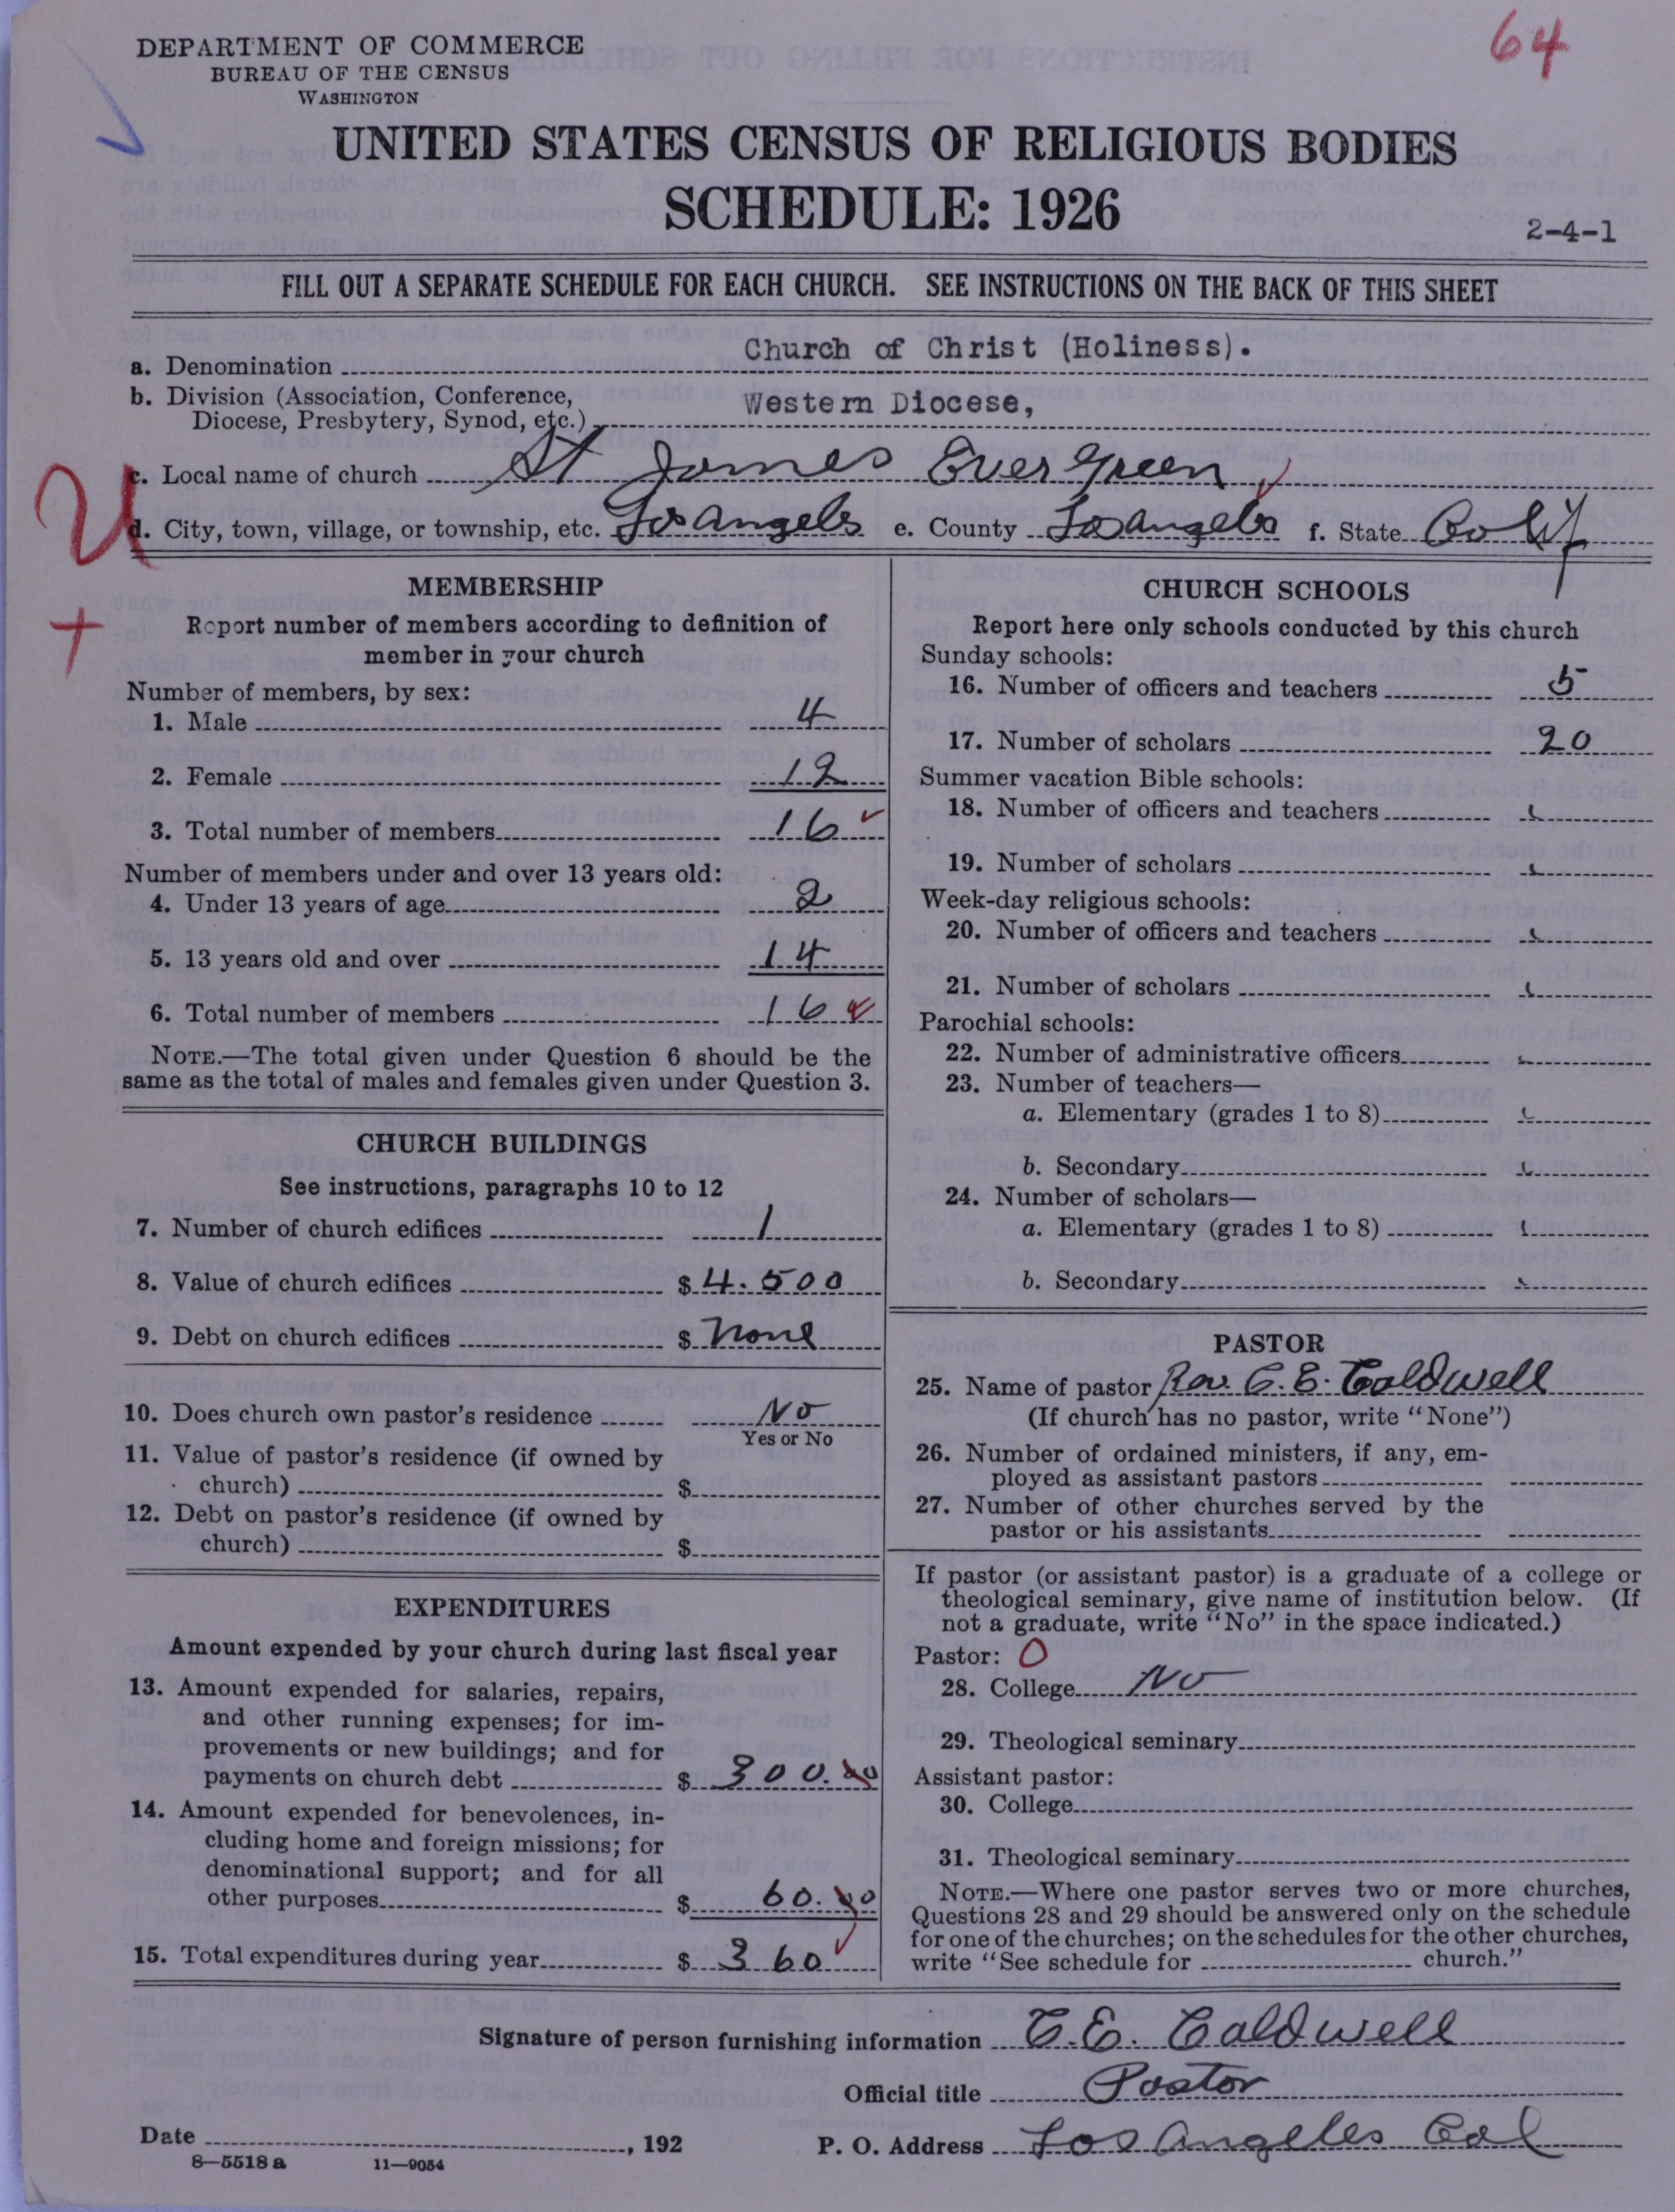 DEPARTMENT OF COMMERCE
BUREAU OF THE CENSUS
WASHINGTON
64
UNITED STATES CENSUS OF RELIGIOUS BODIES
SCHEDULE: 1926
2-4-1
FILL OUT A SEPARATE SCHEDULE FOR EACH CHURCH. SEE INSTRUCTIONS ON THE BACK OF THIS SHEET
a. Denomination Church of Christ (Holiness).
b. Division (Association, Conference, Diocese, Presbytery, Synod, etc.) Western Diocese,
c. Local name of church St James Ever Green
d. City, town, village, or township, etc. Los Angels e. County Los Angels f. State Calif
MEMBERSHIP
Report number of members according to definition of
member in your church
Number of members, by sex:
1. Male 4
2. Female 12
3. Total number of members 16
Number of members under and over 13 years old:
4. Under 13 years of age 2
5. 13 years old and over 14
6. Total number of members 16
NOTE.—The total given under Question 6 should be the
same as the total of males and females given under Question 3.
CHURCH BUILDINGS
See instructions, paragraphs 10 to 12
7. Number of church edifices 1
8. Value of church edifices $ 4.500
9. Debt on church edifices $ None
10. Does church own pastor's residence No
Yes or No
11. Value of pastor's residence (if owned by
church) $
12. Debt on pastor's residence (if owned by
church) $
EXPENDITURES
Amount expended by your church during last fiscal year
13. Amount expended for salaries, repairs,
and other running expenses; for im-
provements or new buildings; and for
payments on church debt $ 300.00
14. Amount expended for benevolences, in-
cluding home and foreign missions; for
denominational support; and for all
other purposes $ 60.00
15. Total expenditures during year $ 360
CHURCH SCHOOLS
Report here only schools conducted by this church
Sunday schools:
16. Number of officers and teachers 5
17. Number of scholars 20
Summer vacation Bible schools:
18. Number of officers and teachers
19. Number of scholars
Week-day religious schools:
20. Number of officers and teachers
21. Number of scholars
Parochial schools:
22. Number of administrative officers
23. Number of teachers—
a. Elementary (grades 1 to 8)
b. Secondary
24. Number of scholars—
a. Elementary (grades 1 to 8)
b. Secondary
PASTOR
25. Name of pastor Rev. C. E. Caldwell
(If church has no pastor, write "None")
26. Number of ordained ministers, if any, em-
ployed as assistant pastors
27. Number of other churches served by the
pastor or his assistants
If pastor (or assistant pastor) is a graduate of a college or
theological seminary, give name of institution below. (If
not a graduate, write "No" in the space indicated.)
Pastor: O
28. College No
29. Theological seminary
Assistant pastor:
30. College
31. Theological seminary
NOTE.—Where one pastor serves two or more churches,
Questions 28 and 29 should be answered only on the schedule
for one of the churches; on the schedules for the other churches,
write "See schedule for church."
Signature of person furnishing information C.E. Caldwell
Official title Pastor
Date , 192 P. O. Address Los Angeles Cal
8—5518 a 11—9054